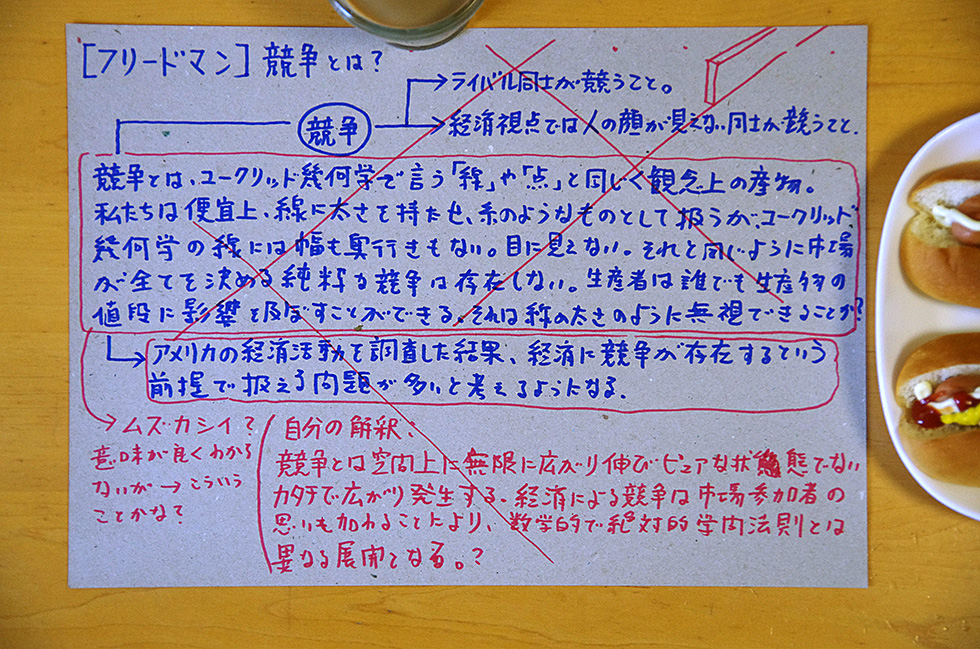 [フリードマン] 競争とは?
ライバル同士が競うこと。
競争
経済視点では人の顔が見えない同士が競うこと.
競争とは、ユークリッド幾何学で言う「線」や「点」と同じく観念上の産物。
私たちは便宜上、線に太さを持たせ、糸のようなものとして扱うが、ユークリッド
幾何学の線には幅も奥行きもない。目に見えない。それと同じように市場
が全てを決める純粋な競争は存在しない。生産者は誰でも生産物の
値段に影響を及ぼすことができる。それは線の太さのように無視できることか?
アメリカの経済活動を調査した結果、経済に競争が存在するという
前提で扱える問題が多いと考えるようになる.
ムズカシイ?
意味が良くわから
ないが→こういう
ことかな?
自分の解釈:
競争とは空間上に無限に広がり伸びピュアな状態でない
カタチで広がり発生する。経済による競争は市場参加者の
思いも加わることにより、数学的で絶対的学内法則とは
異なる展開となる。?